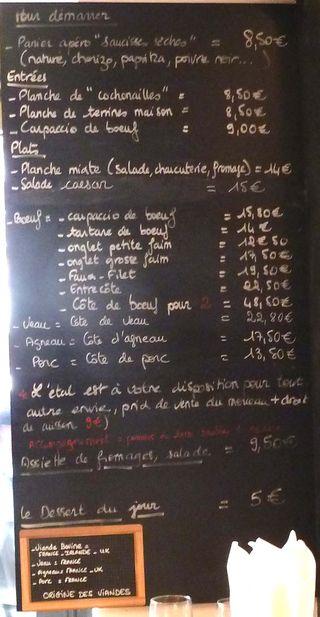 Pour démarrer
- Panier apéro "saucisses sèches" = 8,50€
(nature, chorizo, paprika, poivre noir...)
Entrées
- Planche de "cochonailles" = 8,50€
- Planche de terrines maison = 8,50€
- Carpaccio de boeuf = 9,00€
Plats
- Planche mixte (salade, charcuterie, fromage) = 14€
- Salade caesar = 15€
- Boeuf = - carpaccio de boeuf = 15,80€
- tartare de boeuf = 14€
- onglet petite faim = 12€50
- onglet grosse faim = 17,50€
- Faux-Filet = 19,50€
- Entrecôte = 22,50€
- Côte de boeuf pour 2 = 48,50€
- Veau = Côte de veau = 22,80€
- Agneau = Côte d'agneau = 17,50€
- Porc = Côte de porc = 13,80€
* L'étal est à votre disposition pour tout
autre envie, prix de vente du morceau + droit
de cuisson 9€)
Accompagnement =
Assiette de fromages, salade = 9,50€
Le Dessert du jour = 5€
- Viande Bovine =
FRANCE - IRLANDE - UK
- Veau = FRANCE
- Agneau = FRANCE - UK
- Porc = FRANCE
ORIGINE DES VIANDES